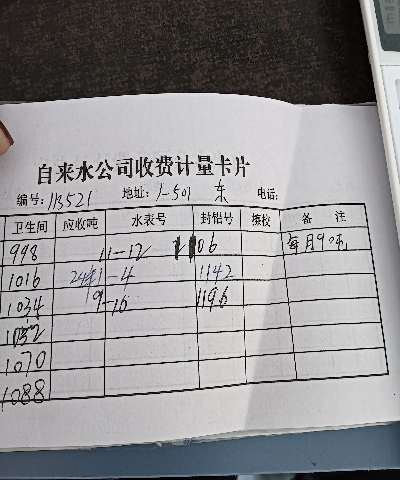 自来水公司收费计量卡片
编号: 113521 地址: 1-501 东 电话:
卫生间 应收吨 水表号 封铅号 检校 备 注
998 11-12 1106 每月9吨
1016 24年1-4 1142
1034 9-16 1196
1052
1070
1088